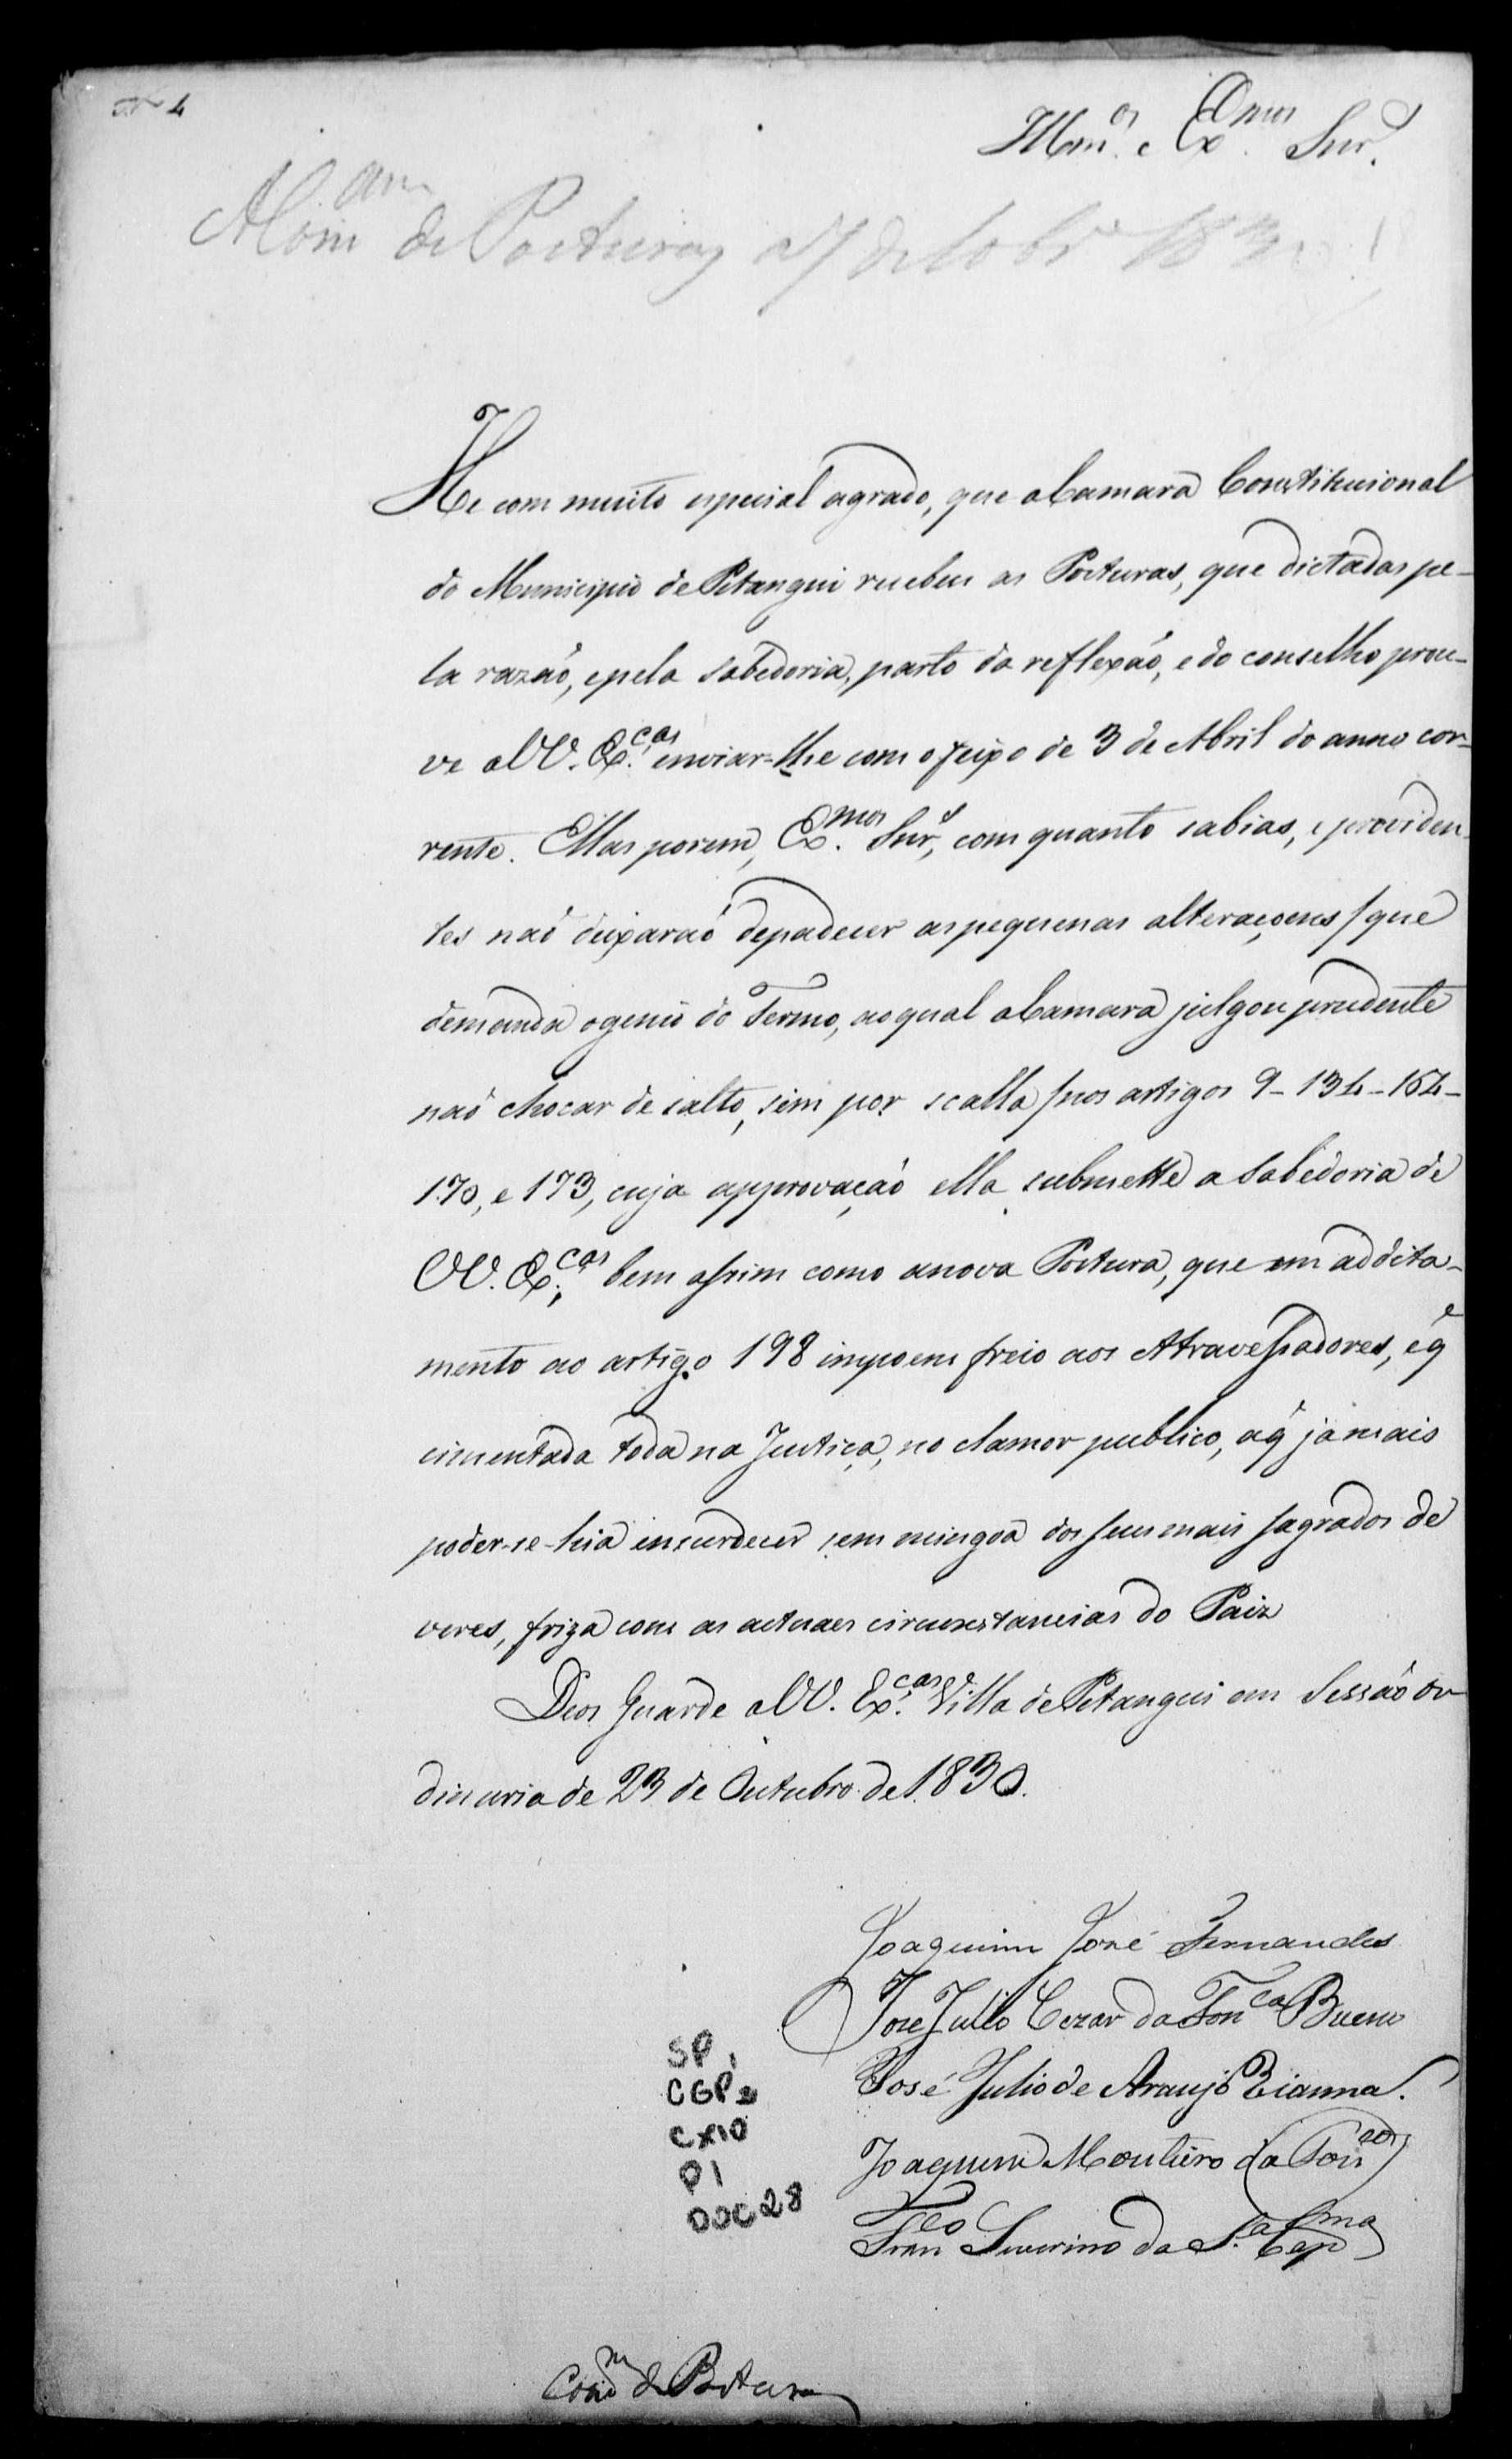 N 4
Illm.os e Ex.mos Snr.s
Comm.am de Posturas 27 de 8br.o 1830
He com muito especial agrado, que a Camara Constitucional
do Municipio de Pitangui recebeu as Posturas, que dictadas pe-
la razaõ, e pela sabedoria, parto da reflexaõ, e do conselho prou-
ve a VV. Ex.cas enviar-lhe com o feixo de 3 de Abril do anno cor-
rente. Ellas porem, Ex.mos Snr.s, com quanto sabias, e providen-
tes naõ deixaraõ de padecer as pequenas alteraçoens / que
demanda o genio do Termo, ao qual a Camara julgou prudente
naõ chocar de salto, sim por scalla / nos artigos 9 - 134 - 154 -
170, e 173, cuja approvaçaõ ella submette a sabedoria de
VV. Ex.cas; bem assim como a nova Postura, que em addita-
mento ao artigo 198 impoem freio aos Atravessadores, e q̃
cimentada toda na Justiça, no clamor publico, a q̃ jamais
poder-se-hia ensurdecer sem mingoa dos seus mais sagrados de
veres, friza com as actuaes circunstancias do Paiz
Deos Guarde a VV. Ex.cas Villa de Pitangui em Sessaõ or
dinaria de 23 de Outubro de 1830.
Joaquim José Fernandes
Jose Julio Cezar da Fon.ca Bueno
José Julio de Araujo Vianna.
Joaquim Monteiro da Fon.ca
Fran.co Severino da S.a Cap.ma
SP 1
CGP 2
CX10
P1
DOC 28
Com.m de Postura